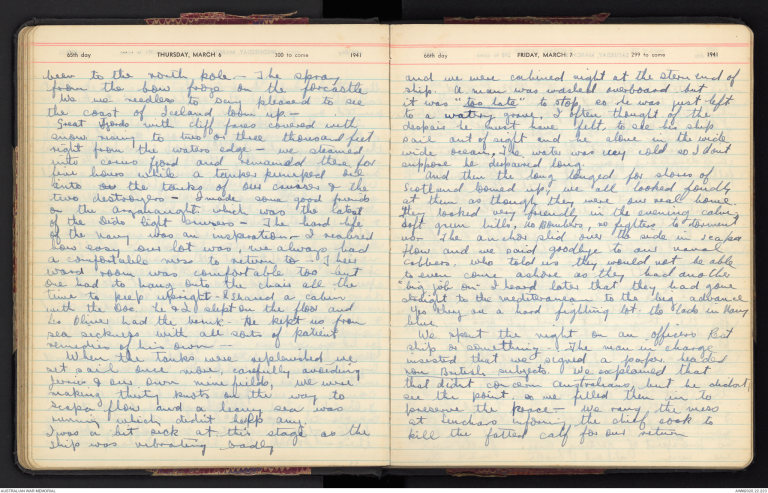 65th day THURSDAY, MARCH 6 300 to come 1941
been to the north pole - The spray
from the bow froze on the forcastle
We we needless to say pleased to see
the coast of Iceland loom up -
Great fjords with cliff faces covered with
snow rising to two or three thousand feet
right from the waters edge - we steamed
into fjord and remained there for
five hours while a tanker pumped oil
into the tanks of our cruiser & the
two destroyers - I made some good friends
on the which was the latest
of the Dido light cruisers - The hard life
of the navy was an inspiration - I realised
how easy our lot was, we always had
a comfortable mess to return to - Their
ward room was comfortable too but
one had to hang onto the chair all the
time to keep upright - I shared a cabin
with the Doc. He & I slept on the floor and
Les Oliver had the bunk - He kept us from
sea sickness with all sorts of patient
remedies of his own -
When the tanks were replenished we
set sail once more, carefully avoiding
Jerries & our own mine fields, we were
making thirty knots on the way to
Scapa flow and a heavy sea was
running which didn't help any.
I was a bit sick at this stage as the
ship was vibrating badly
66th day FRIDAY, MARCH 7 299 to come 1941
and we were cabined right at the stern end of
ship. A man was washed overboard but
it was "too late" to stop, so he was just left
to a watery grave, I often thought of the
despair he must have felt, to see his ship
sail out of sight and he alone in the wide
wide ocean, The water was very cold so I dont
suppose he despaired long.
And then the long longed for shores of
Scotland loomed up, we all looked fondly
at them as though they were our real home.
They looked very friendly in the evening calm,
soft green hills, no bombers, no fighters, to torment
us. The anchor slid over the side in Scapa
flow and we said goodbye to our naval
cobbers, who told us they would not be able
to even come ashore as they had another
"big job on" I heard later that they had gone
straight to the mediteranean to the big advance
Yes they are a hard fighting lot the lads in Navy
blue.
We spent the night on an officers Rest
ship or something. The man in charge
insisted that we signed a paper headed
non British subjects. We explained that
that didnt concern Australians, but he didnt
see the point, so we filled them in to
preserve the peace - We rang the mess
at Leuchars informing the chief cook to
kill the fatted calf for our return
AUSTRALIAN WAR MEMORIAL